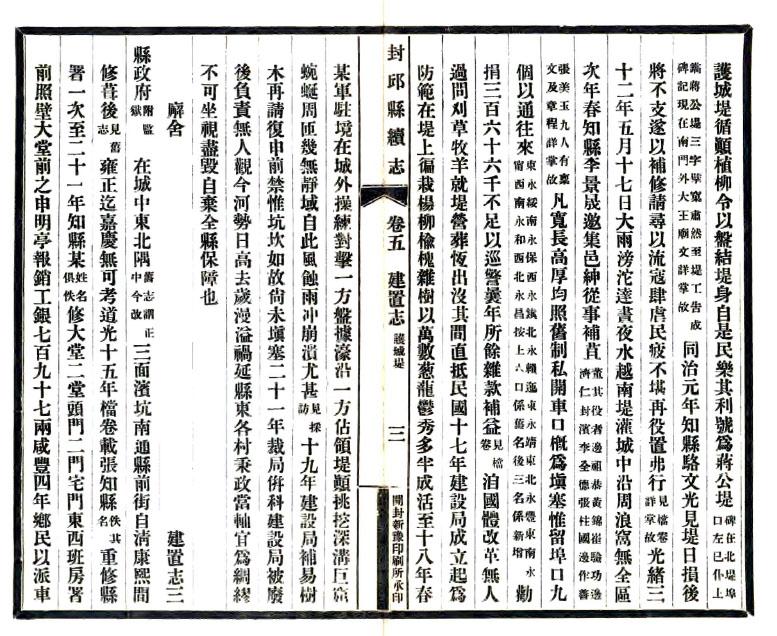 護城堤循顚植柳令以盤結堤身自是民樂其利號爲蔣公堤碑在北堤埠口左已仆上
鐫蔣公堤三字畢寬肅然至堤工告成碑記現在南門外大王廟文詳掌故同治元年知縣駱文光見堤日損後
將不支遂以補修請尋以流寇肆虐民疲不堪再役置弗行見檔卷詳掌故光緒三
十二年五月十七日大雨滂沱達晝夜水越南堤灌城中沿周浪窩無全區
次年春知縣李景晟邀集邑紳從事補苴董其役者邊祖恭黃錦崔驗功邊濟仁封濱李全德張柱國邊作善
張美玉九人有稟文及章程詳掌故凡寬長高厚均照舊制私開車口槪爲塡塞惟留埠口九
個以通往來東永綏南永保西永鎭北永賴迤東永靖東北永豐東南永甯西南永和西北永昌按上六口係舊名後三名係新增勸
捐三百六十六千不足以巡警曩年所餘雜款補益見檔卷洎國體改革無人
過問刈草牧羊就堤營葬恆出沒其間直抵民國十七年建設局成立起爲
防範在堤上徧栽楊柳楡槐雜樹以萬數葱龍鬱秀多半成活至十八年春
封邱縣續志
卷五
建置志
護城堤
三
開封新豫印刷所承印
某軍駐境在城外操練對擊一方盤據濠沿一方佔領堤顚挑挖深溝巨窩
蜿蜒周匝幾無靜域自此風蝕雨冲崩潰尤甚見採訪十九年建設局補易樹
木再請復申前禁惟坑坎如故尙未塡塞二十一年裁局倂科建設局被廢
後負責無人觀今河勢日高去歲漫溢禍延縣東各村秉政當軸官爲綢繆
不可坐視盡毀自棄全縣保障也
建置志三
廨舍
縣政府附監獄在城中東北隅舊志謂正中今故三面濱坑南通縣前街自清康熙間
修葺後見舊志雍正迄嘉慶無可考道光十五年檔卷載張知縣佚其名重修縣
署一次至二十一年知縣某姓名俱佚修大堂二堂頭門二門宅門東西班房署
前照壁大堂前之申明亭報銷工銀七百九十七兩咸豐四年鄉民以派車